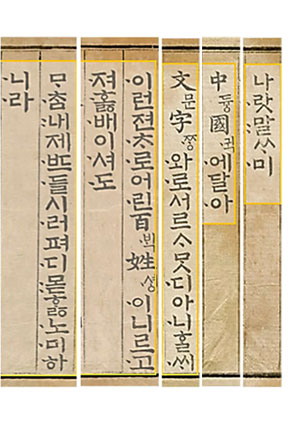 나랏말ᄊᆞ미
中듕國귁에달아
文문字ᄍᆞᆼ와로서르ᄉᆞᄆᆞᆺ디아니ᄒᆞᆯᄊᆡ
이런젼ᄎᆞ로어린百ᄇᆡᆨ姓셩이니르고
져호ᇙ배이셔도
ᄆᆞᄎᆞᆷ내제ᄠᅳ들시러펴디몯ᄒᆞᇙ노미하
니라